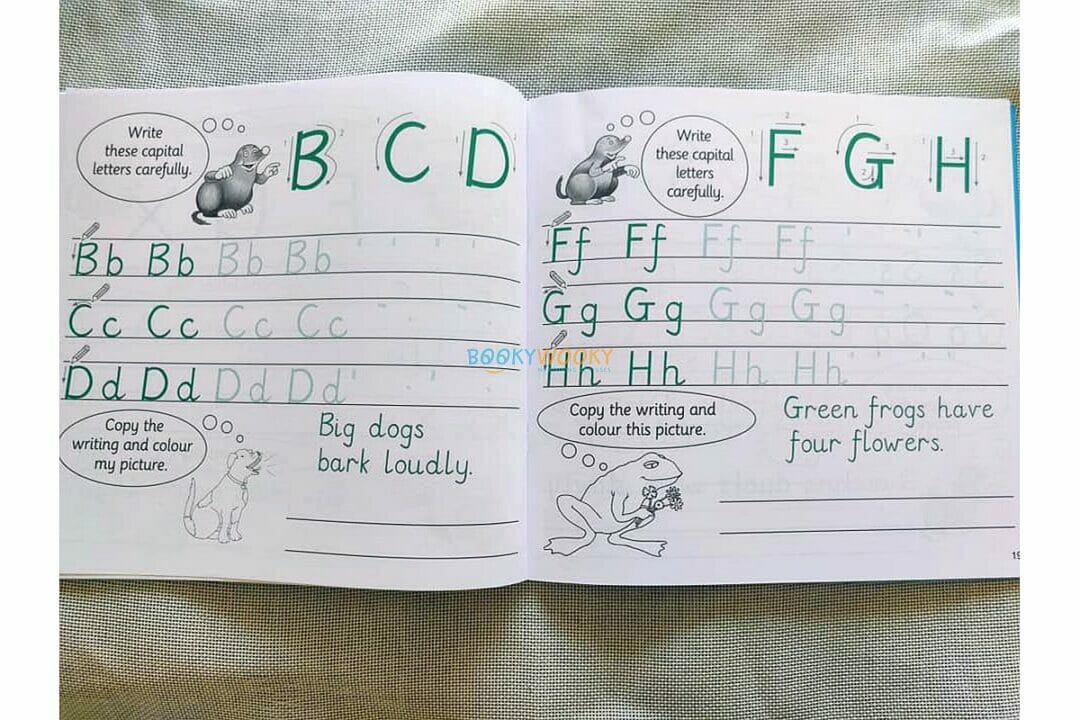 Write
these capital
letters carefully.
B C D
Bb Bb Bb Bb
Cc Cc Cc Cc
Dd Dd Dd Dd
Copy the
writing and colour
my picture.
Big dogs
bark loudly.
Write
these capital
letters
carefully.
F G H
Ff Ff Ff Ff
Gg Gg Gg Gg
BOOKYWOOKY
Hh Hh Hh Hh
Copy the writing and
colour this picture.
Green frogs have
four flowers.